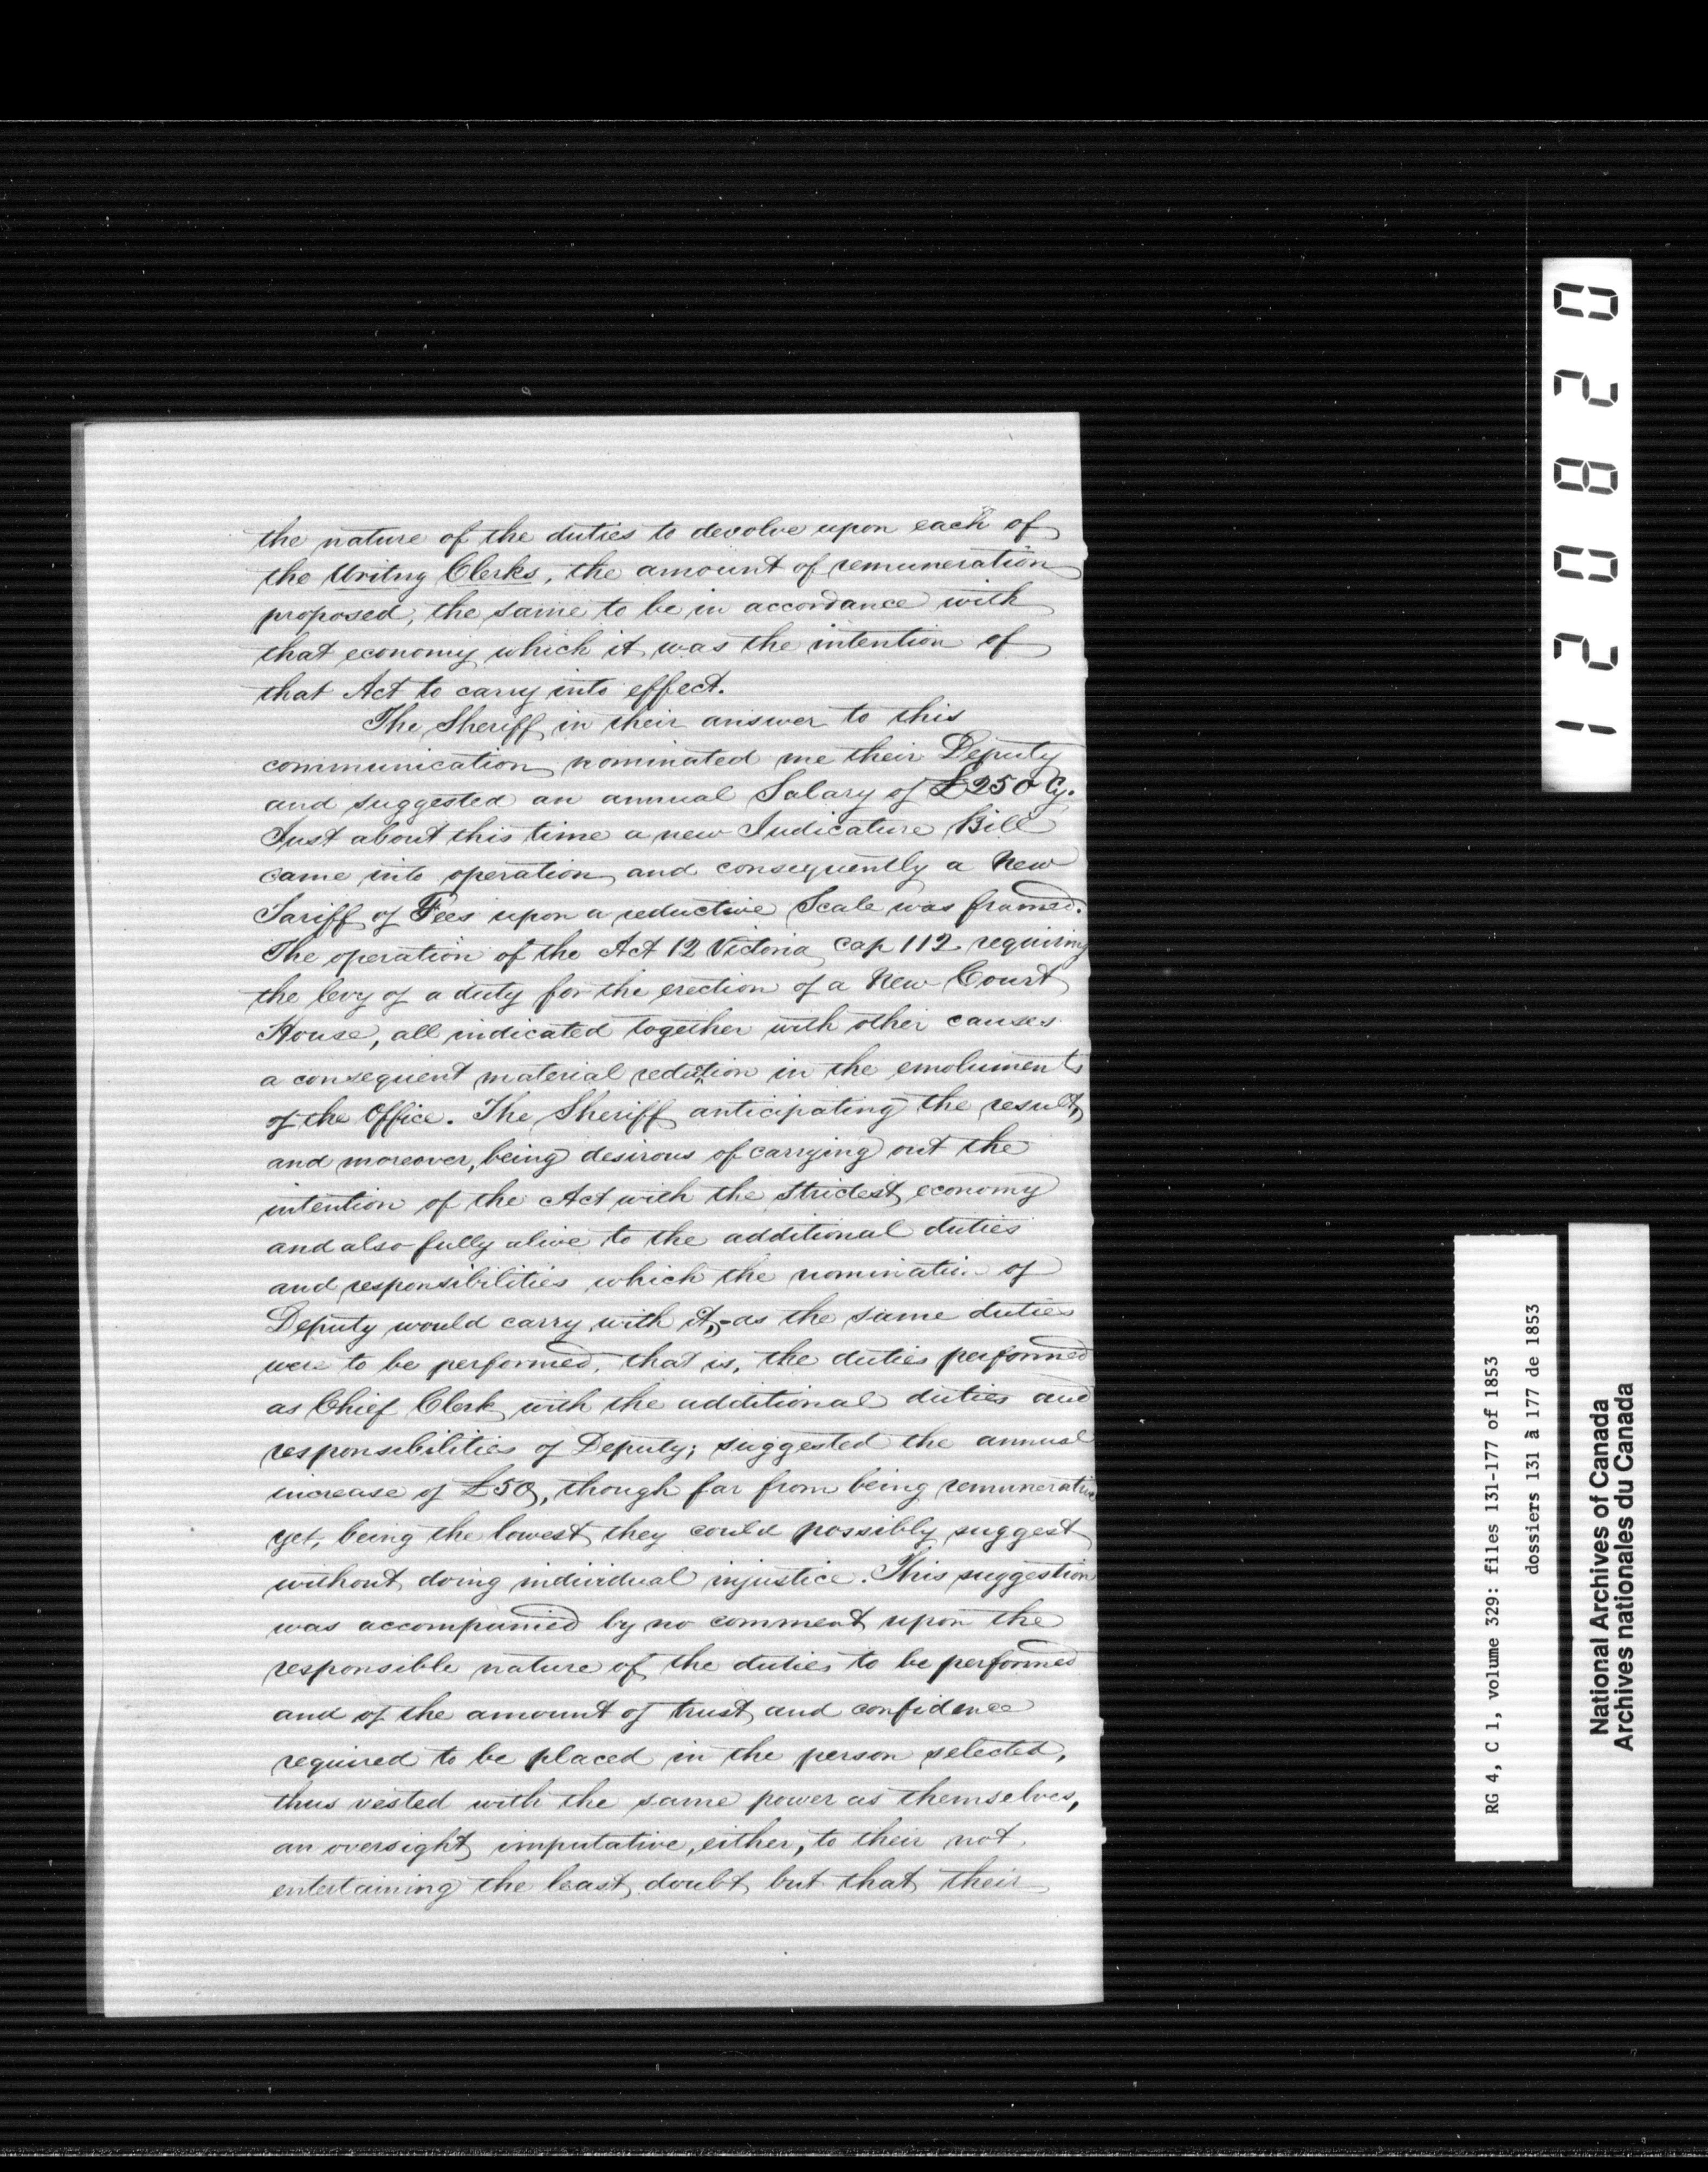 the nature of the duties to devolve upon each of
the Writng Clerks, the amount of remuneration
proposed, the same to be in accordance with
that economy which it was the intention of
that Act to carry into effect.
The Sheriff in their answer to this
communication nominated me their Deputy
and suggested an annual Salary of £250 Cy.
Just about this time a new Judicature Bill
came into operation and consequently a New
Tariff of Fees upon a reductive Scale was framed.
The operation of the Act 12 Victoria Cap 112 requiring
the levy of a duty for the erection of a New Court
House, all indicated together with other causes
a consequent material redution in the emoluments
of the Office. The Sheriff anticipating the result,
and moreover, being desirous of carrying out the
intention of the Act with the strictest economy
and also fully alive to the additional duties
and responsibilities which the nomination of
Deputy would carry with it,-as the same duties
were to be performed, that is, the duties performed
as Chief Clerk with the additional duties and
responsibilities of Deputy; suggested the annual
increase of £50, though far from being remunerative
yet, being the lowest they could possibly suggest
without doing individual injustice. This suggestion
was accompanied by no comment upon the
responsible nature of the duties to be performed
and of the amount of trust and confidence
required to be placed in the person selected,
thus vested with the same power as themselves,
an oversight imputative, either, to their not
entertaining the least doubt but that their
120820
RG 4, C 1, volume 329: files 131-177 of 1853
dossiers 131 à 177 de 1853
National Archives of Canada
Archives nationales du Canada